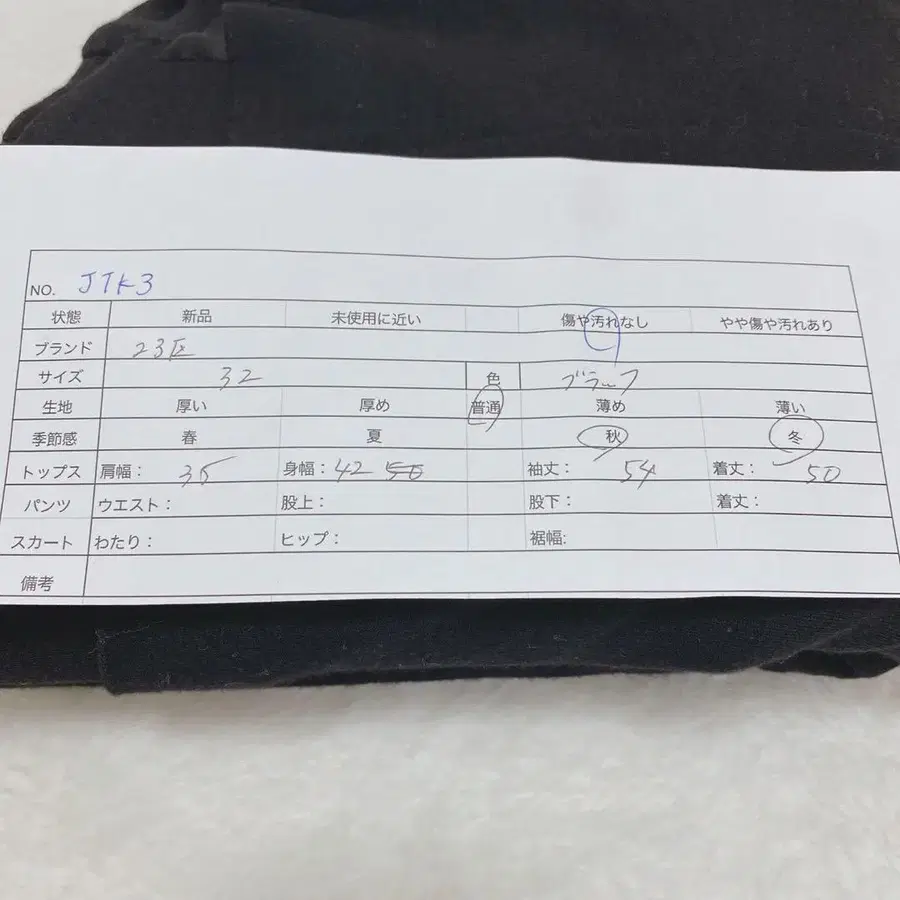 NO. JTK3
状態 新品 未使用に近い 傷や汚れなし やや傷や汚れあり
ブランド 23区
サイズ 32 色 ブラック
生地 厚い 厚め 普通 薄め 薄い
季節感 春 夏 秋 冬
トップス 肩幅: 35 身幅: 42 50 袖丈: 54 着丈: 50
パンツ ウエスト: 股上: 股下: 着丈:
スカート わたり: ヒップ: 裾幅:
備考